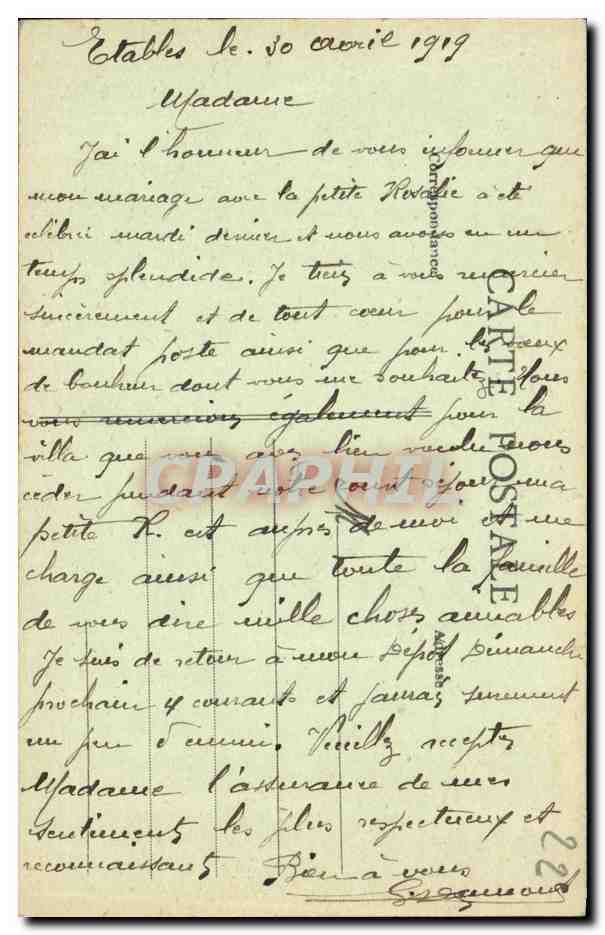 Etables le. 30 avril 1919
Madame
J'ai l'honneur de vous informer que
mon mariage avec la petite Rosalie à été
célébré mardi dernier et nous avons eu un
temps splendide. Je tiens à vous remercier
sincèrement et de tout cœur pour le
mandat poste ainsi que pour les vœux
de bonheur dont vous me souhaitez. Nous
vous remercions également pour la
villa que vous avez bien voulu nous
céder pendant notre court séjour ma
petite R. est auprès de moi et me
charge ainsi que toute la famille
de vous dire mille choses aimables
Je suis de retour à mon Dépôt Dimanche
prochain 4 courants et j'aurai surement
un peu d'ennui. Veuillez accepter
Madame l'assurance de mes
sentiments les plus respectueux et
reconnaissants Bien à vous
CARTE POSTALE
Correspondance
Adresse
CPAPHIL
22